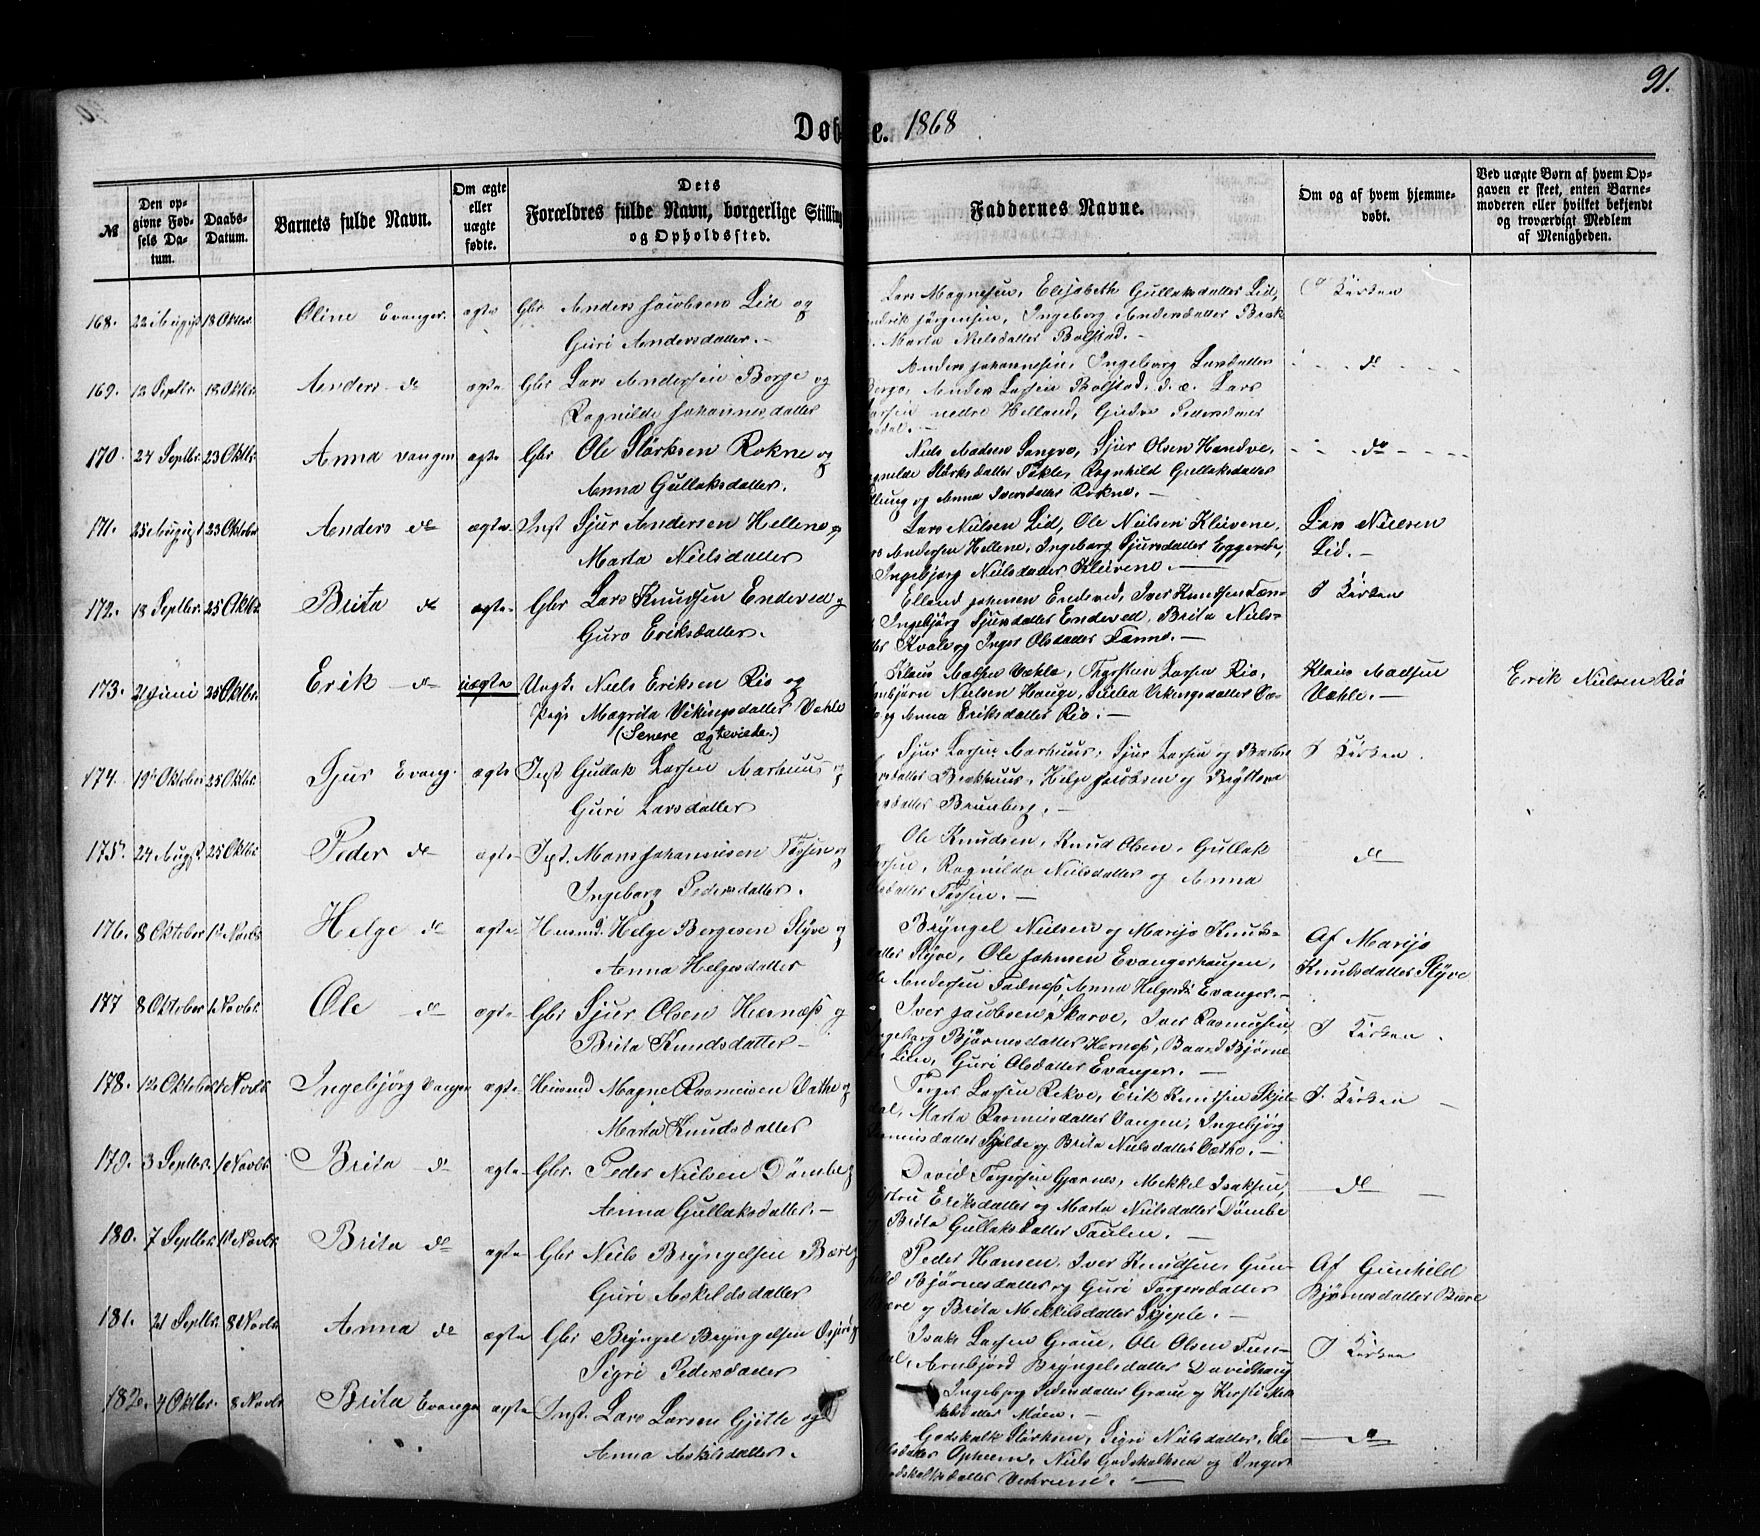 91.
Døb e. 1868
№
Den op-
givne Fød-
sels Da-
tum.
Daabs-
Datum.
Barnets fulde Navn.
Om ægte
eller
uægte
fødte.
Dets
Forældres fulde Navn, borgerlige Stilling
og Opholdssted.
Faddernes Navne.
Om og af hvem hjemme-
døbt.
Ved uægte Børn af hvem Op-
gaven er skeet, enten Barne-
moderen eller hvilket bekjendt
og troværdigt Medlem
af Menigheden.
168. 22 August 18 Oktbr. Oline Evanger ægte Gbr Anders Jacobsen Lid og
Guri Andersdatter.
Lars Magnesen, Elisabeth Gullaksdatter Lid,
Jørgensen, Ingeborg Andersdatter
Marta Nielsdatter Bolstad.
I Kirken
169. 18 Oktbr. Anders do ægte Gbr Lars Andersen Borge og
Ragnilde Johannesdatter
Anders Johannesen, Ingeborg Larsdatter
Anders Larsen Bolstad, Lars
nedre Helland, Pedersdatter
do
170. 24 Septbr. 23 Oktbr. Anna Vangen ægte Gbr Ole Størksen Rokne og
Anna Gullaksdatter.
Niels Madsen Sjur Olsen Handve,
Størksdatter Ragnhild Gullaksdatter
og Anna Iversdatter Rokne.
do
171. 25 August 23 Oktober Anders do ægte Inst Sjur Andersen Hellene og
Marta Nielsdatter
Lars Nielsen Lid, Ole Nielsen Kleivene,
Andersen Hellene, Ingeborg Sjursdatter
Ingebjørg Nielsdatter Kleivene.
Lars Nielsen
Lid.
172. 13 Septbr. 25 Oktbr. Brita do ægte Gbr Lars Knudsen Endeved og
Guro Eriksdatter.
Elland Johnsen Endeved, Iver Knudsen
Ingebjørg Sjursdatter Endeved, Brita Niels-
Kvale og Inger Olsdatter
I Kirken
173. 21 Juni 25 Oktbr. Erik do uægte Ungk. Niels Eriksen Rio og
Pige Magrita Vikingsdatter Væhle
(Senere ægteviede.)
Klaus Madsen Væhle, Thorstein Larsen Rio,
Nielsen Hauge, Vikingsdatter
og Anna Eriksdatter Rio.
Klaus Madsen
Væhle.
Erik Nielsen Rio
174. 19 Oktober 25 Oktbr. Sjur Evang. ægte Inst Gullak Larsen Aarhuus og
Guri Larsdatter
Sjur Larsen Aarhuus, Sjur Larsen og
Brækhuus, Helge Jacobsen og
Brunberg.
I Kirken
175. 24 Augst 25 Oktbr Peder do ægte Inst. Mons Johannesen Fosjen og
Ingeborg Pedersdatter.
Ole Knudsen, Knud Olsen, Gullak
Ragnilda Nielsdatter og Anna
Fosjen.
do
176. 8 Oktober 1 Novbr Helge do ægte Husmd. Helge Børgesen Styve og
Anna Helgesdatter
Bryngel Nielsen og Marijo Knuds-
datter Styve, Ole Johnsen Evangerhaugen,
Andersen Anna Helgesd. Evanger.
Af Marijo
Knudsdatter Styve
177 8 Oktober 1 Novbr. Ole do ægte Gbr Sjur Olsen Hernæss og
Brita Knudsdatter
Iver Jacobsen Skarve, Iver Rasmusen,
Ingeborg Bjørnesdatter Hernæss, Baard Bjørne-
Lien, Guri Olsdatter Evanger.
I Kirken
178. 12 Oktober 1 Novbr Ingebjørg Vangen ægte Husmd Magne Rasmusen Væthe og
Marta Knudsdatter
Torger Larsen Rekve, Erik Knudsen Skjel-
dal, Marta Rasmusdatter Vangen, Ingebjørg
Rasmusdatter og Brita Nielsdatter Væthe.
I Kirken
179. 3 Septbr. 1 Novbr. Brita do ægte Gbr. Peder Nielsen Dømbe og
Anna Gullaksdatter.
David Torgersen Gjernes, Mikkel Isaksen,
Eriksdatter og Marta Nielsdatter Dømbe
Brita Gullaksdatter Taulen.
do
180. 7 Septbr. 1 Novbr. Brita do ægte Gbr Niels Bryngelsen Bære og
Guri Askildsdatter
Peder Hansen, Iver Knudsen, Gun-
hild Bjørnesdatter og Guri Torgersdatter
Bære og Brita Mikkilsdatter Skjeple.
Af Gunhild
Bjørnesdatter Bære
181. 21 Septbr 8 Novbr. Anna do ægte Gbr Bryngel Bryngelsen
Sigri Pedersdatter
Isak Larsen Graue, Ole Olsen
Arnbjørd Bryngelsdatter Davidhaug
Ingebjørg Pedersdatter Graue og Kirsti
Møen.
I Kirken
182. 4 Oktbr. 8 Novbr Brita Evanger ægte Inst. Lars Larsen Gjitle og
Anna Askilsdatter.
Godskalk Størksen, Sigri Nielsdatter,
Opheim, Niels Godskalksen og Inger
Godskalksdatter
do